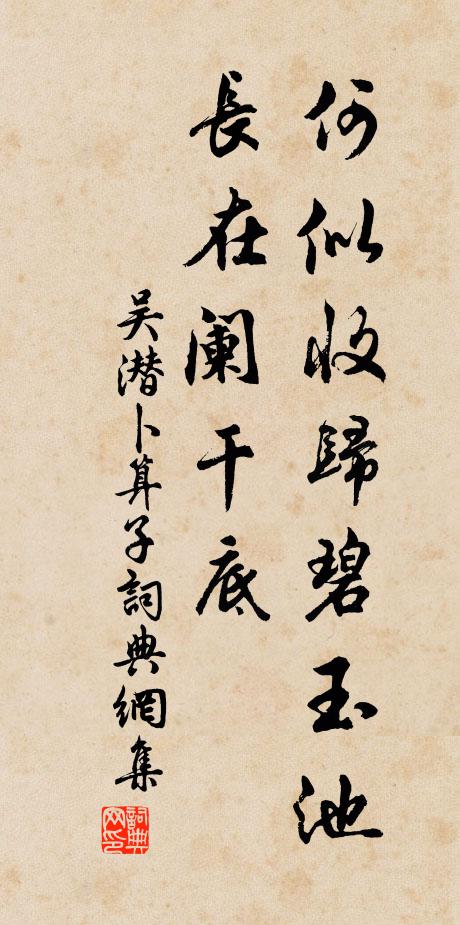 何似收歸碧玉池
長在阑干底
吴潛卜算子詞典網集
詞典网印